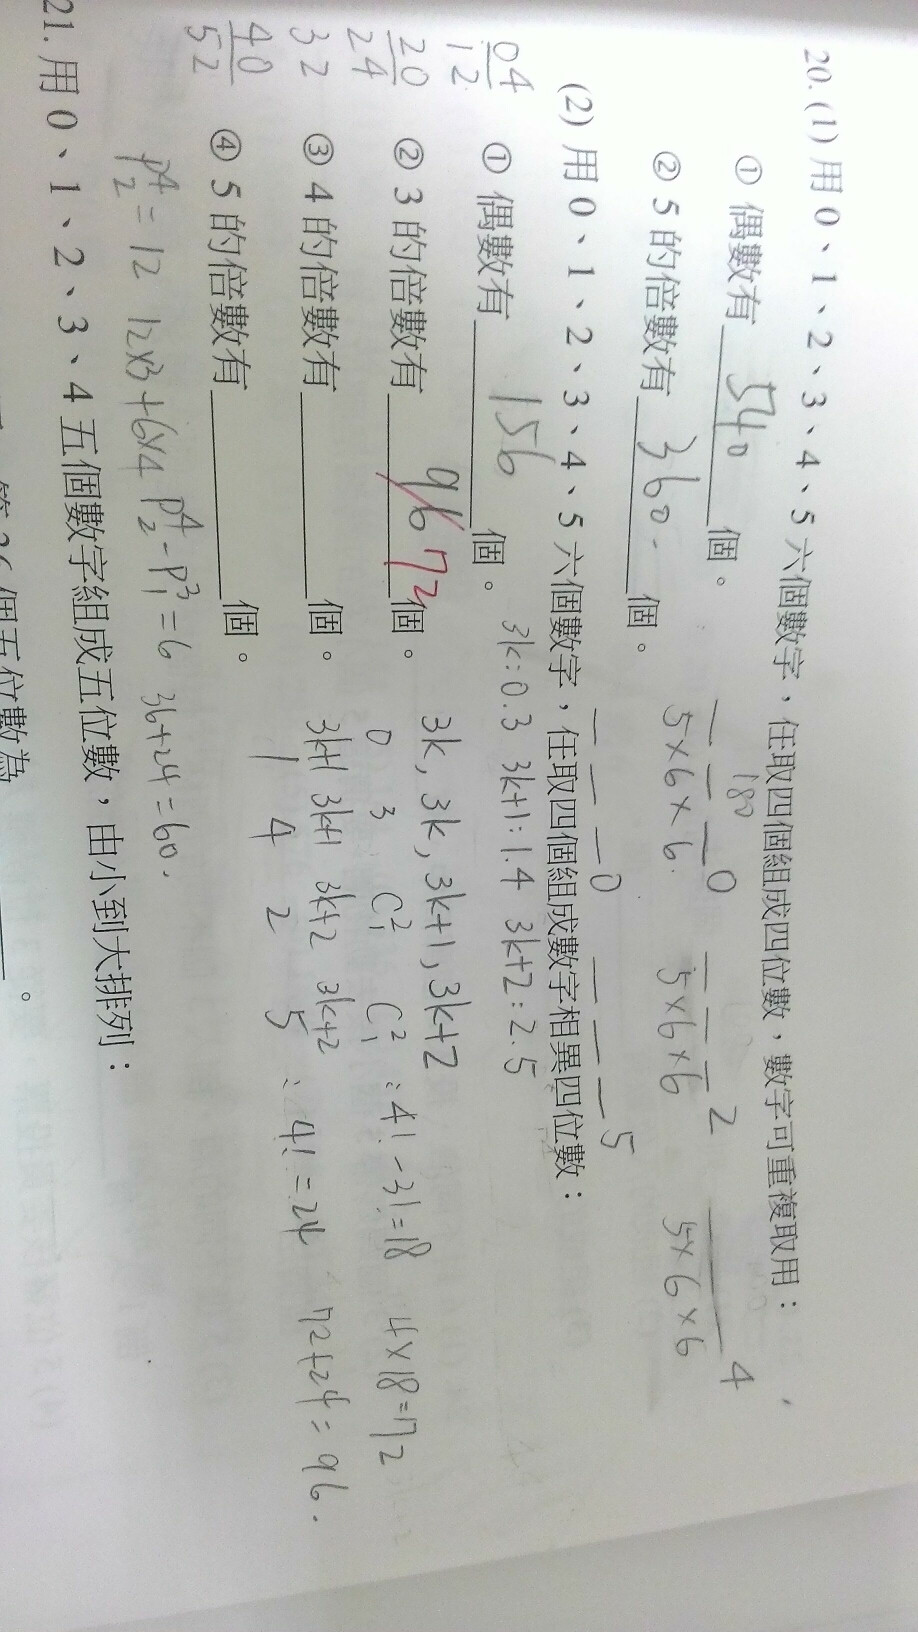 20. (1) 用 0、1、2、3、4、5 六個數字，任取四個組成四位數，數字可重複取用：
① 偶數有 540 個。
180
0 2 4
5×6×6. 5×6×6 5×6×6
② 5 的倍數有 360. 個。
0 5
(2) 用 0、1、2、3、4、5 六個數字，任取四個組成數字相異四位數：
① 偶數有 156 個。
3k:0.3 3k+1:1.4 3k+2:2.5
② 3 的倍數有 96 72 個。
3k, 3k, 3k+1, 3k+2
0 3 C²₁ C²₁ : 4!-3!=18 4×18=72
③ 4 的倍數有 個。
3k+1 3k+1 3k+2 3k+2
1 4 2 5 : 4!=24 72+24=96.
④ 5 的倍數有 個。
04
12
20
24
32
40
52
P⁴₂=12 12×3+6×4 P⁴₂-P³₁=6 36+24=60.
21. 用 0、1、2、3、4 五個數字組成五位數，由小到大排列：
個五位數為 。